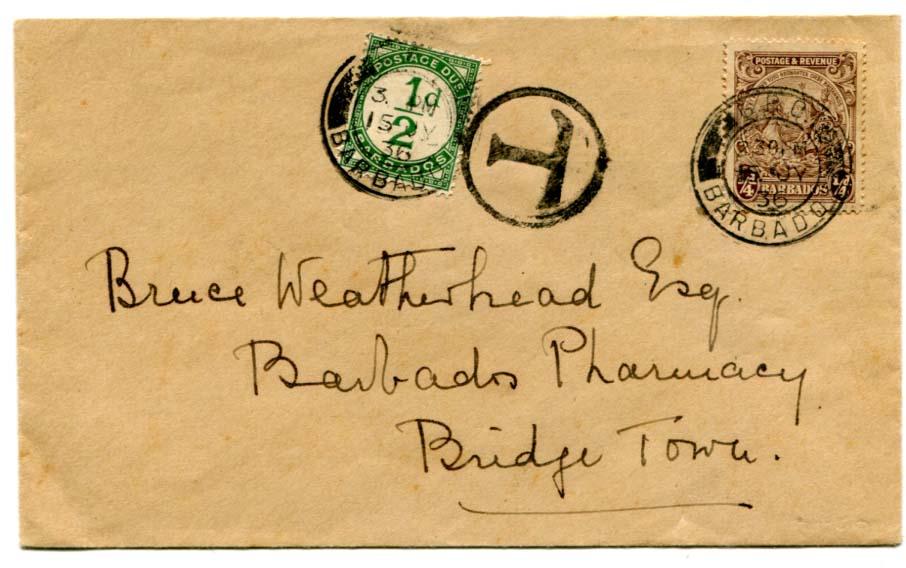 POSTAGE DUE
1/2d
BARBADOS
15
36
BARBAD
T
POSTAGE & REVENUE
1/4 BARBADOS 1/4
G.P.O.
36
BARBADO
Bruce Weatherhead Esq.
Barbados Pharmacy
Bridge Town.